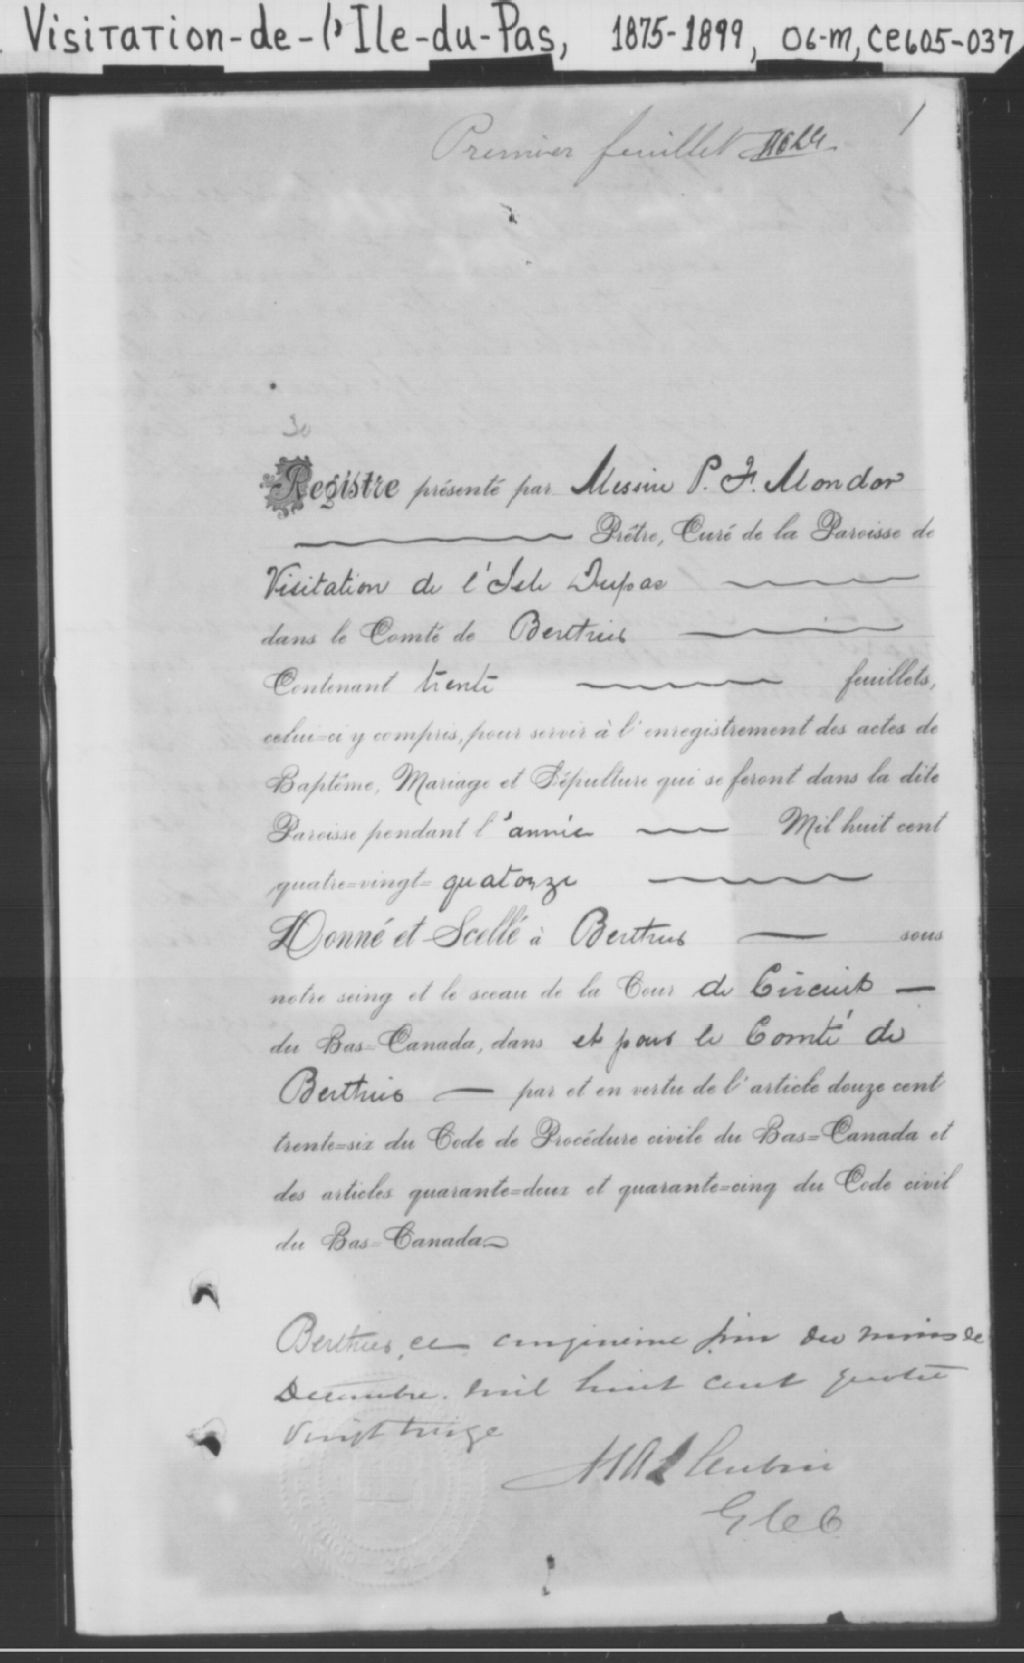 Visitation-de-l'Ile-du-Pas, 1875-1899, 06-m, CE605-037
1
Premier feuillet
30
Registre présenté par Messire P. F. Mondor
Prêtre, Curé de la Paroisse de
Visitation de l'Isle Dupas
dans le Comté de Berthier
Contenant trente feuillets,
celui=ci y compris, pour servir à l'enregistrement des actes de
Baptême, Mariage et Sépulture qui se feront dans la dite
Paroisse pendant l'année Mil huit cent
quatre=vingt=quatorze
Donné et Scellé à Berthier sous
notre seing et le sceau de la Cour de Circuit
du Bas=Canada, dans et pour le Comté de
Berthier par et en vertu de l'article douze cent
trente=six du Code de Procédure civile du Bas=Canada et
des articles quarante=deux et quarante=cinq du Code civil
du Bas=Canada
Berthier, ce cinquième jour du mois de
Décembre mil huit cent quatre
vingt treize